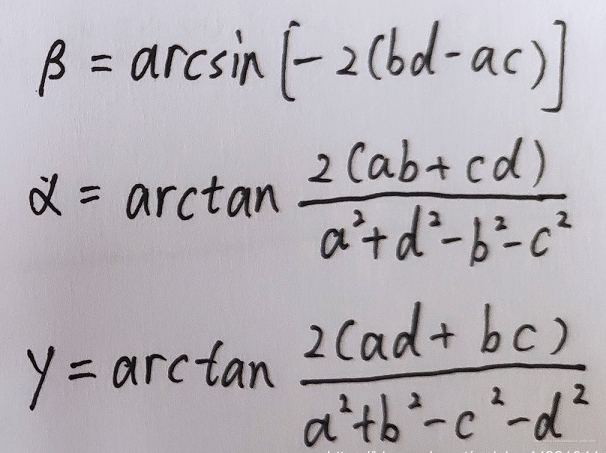 β = arcsin [- 2(bd-ac)]
α = arctan 2(ab+cd) / a²+d²-b²-c²
γ = arctan 2(ad+bc) / a²+b²-c²-d²